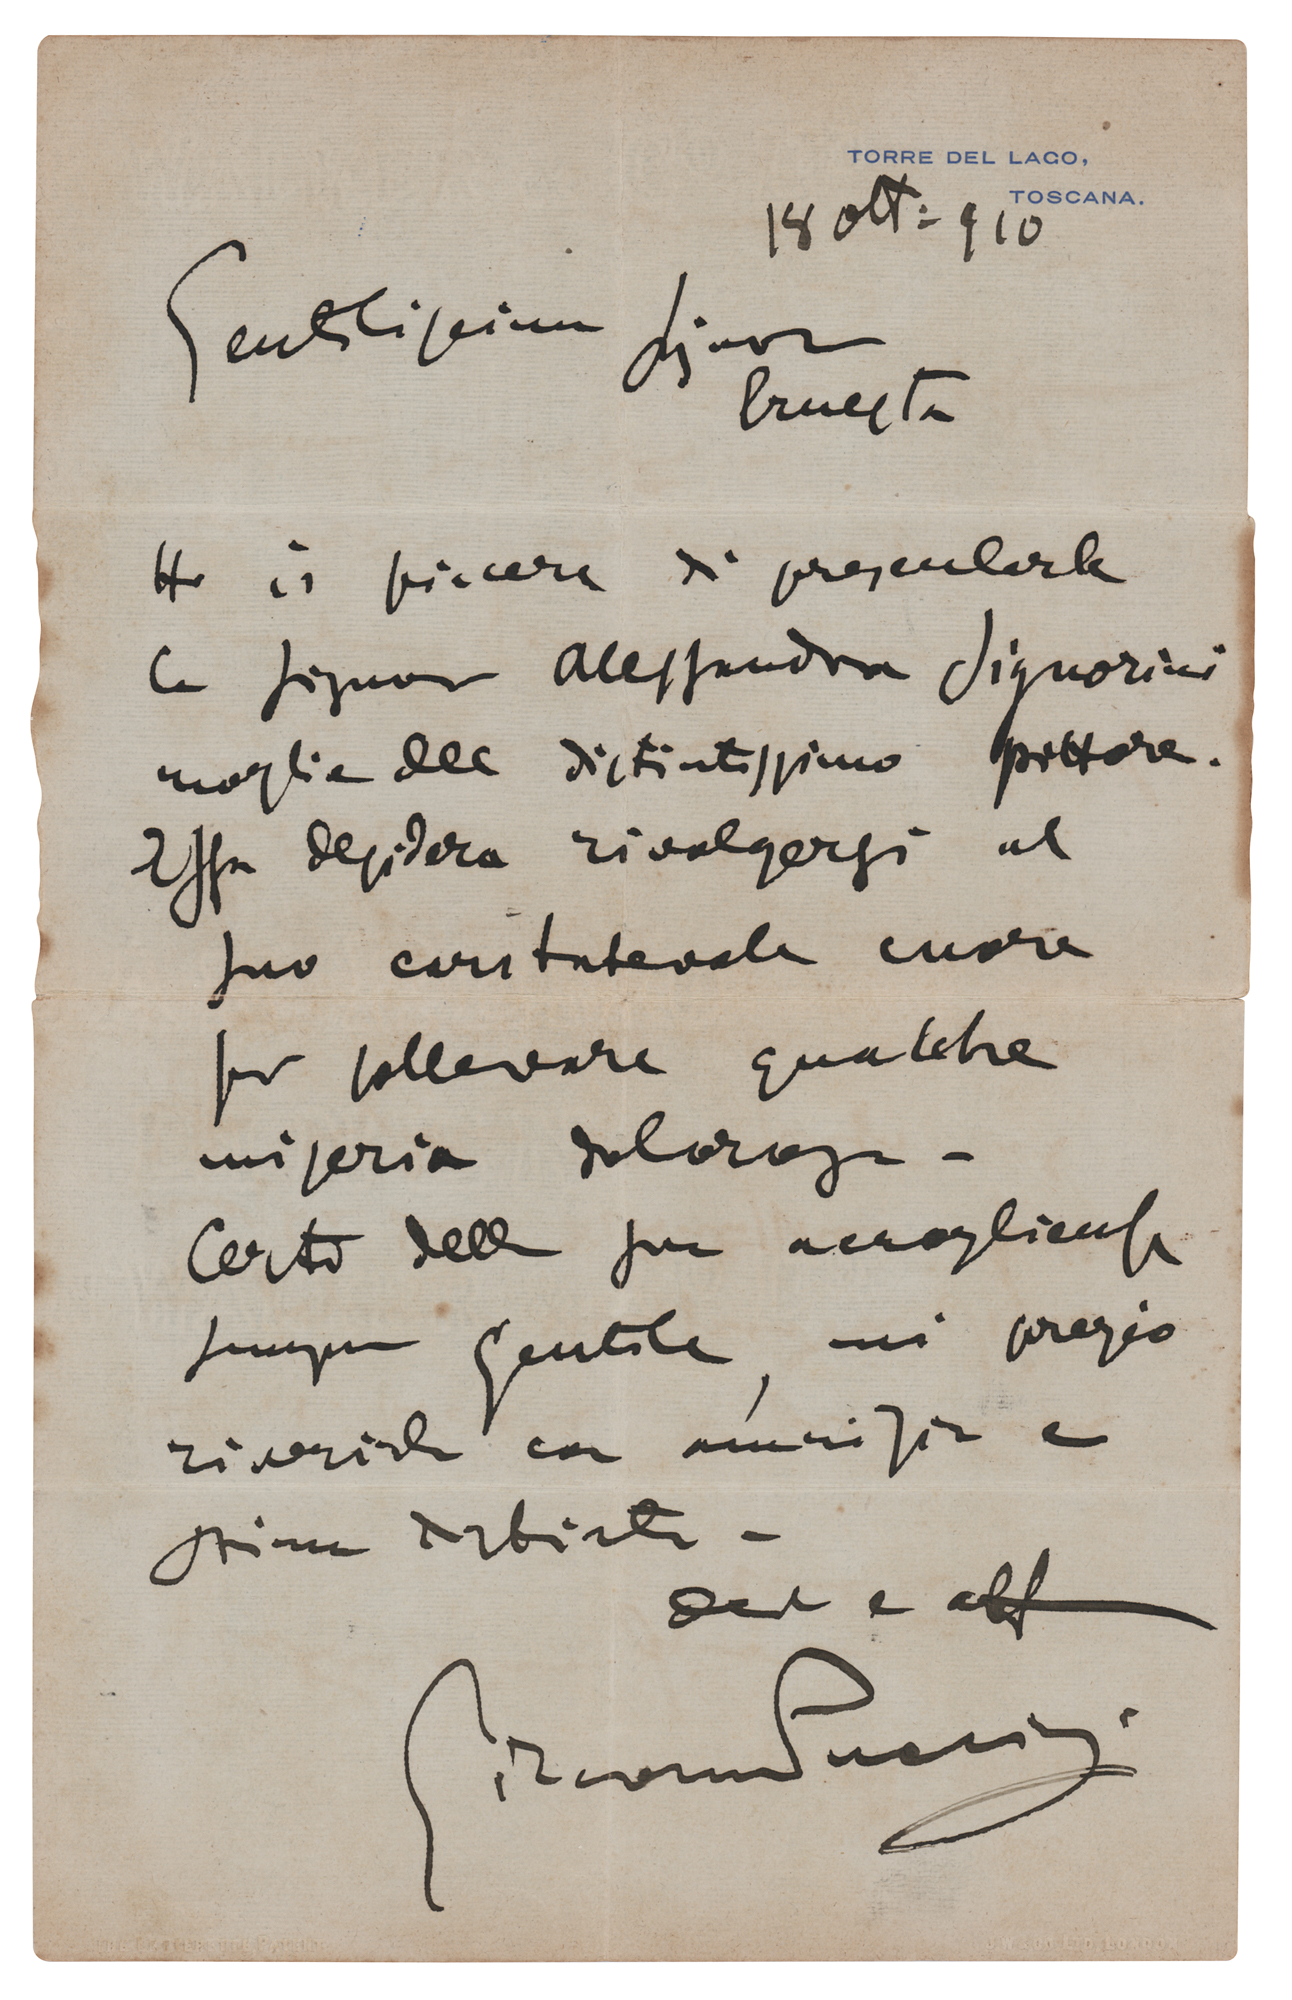 TORRE DEL LAGO,
TOSCANA.
18 ott: 910
Gentilissima Signora
Ernesta
Ho il piacere di presentarle
la Signora Alessandra Signorini
moglie del distintissimo pittore.
Essa desidera rivolgersi al
suo caritatevole cuore
per sollevare qualche
miseria dolorosa –
Certo della sua accoglienza
sempre gentile, mi pregio
riverirla con amicizia e
stima
e aff
Giacomo Puccini